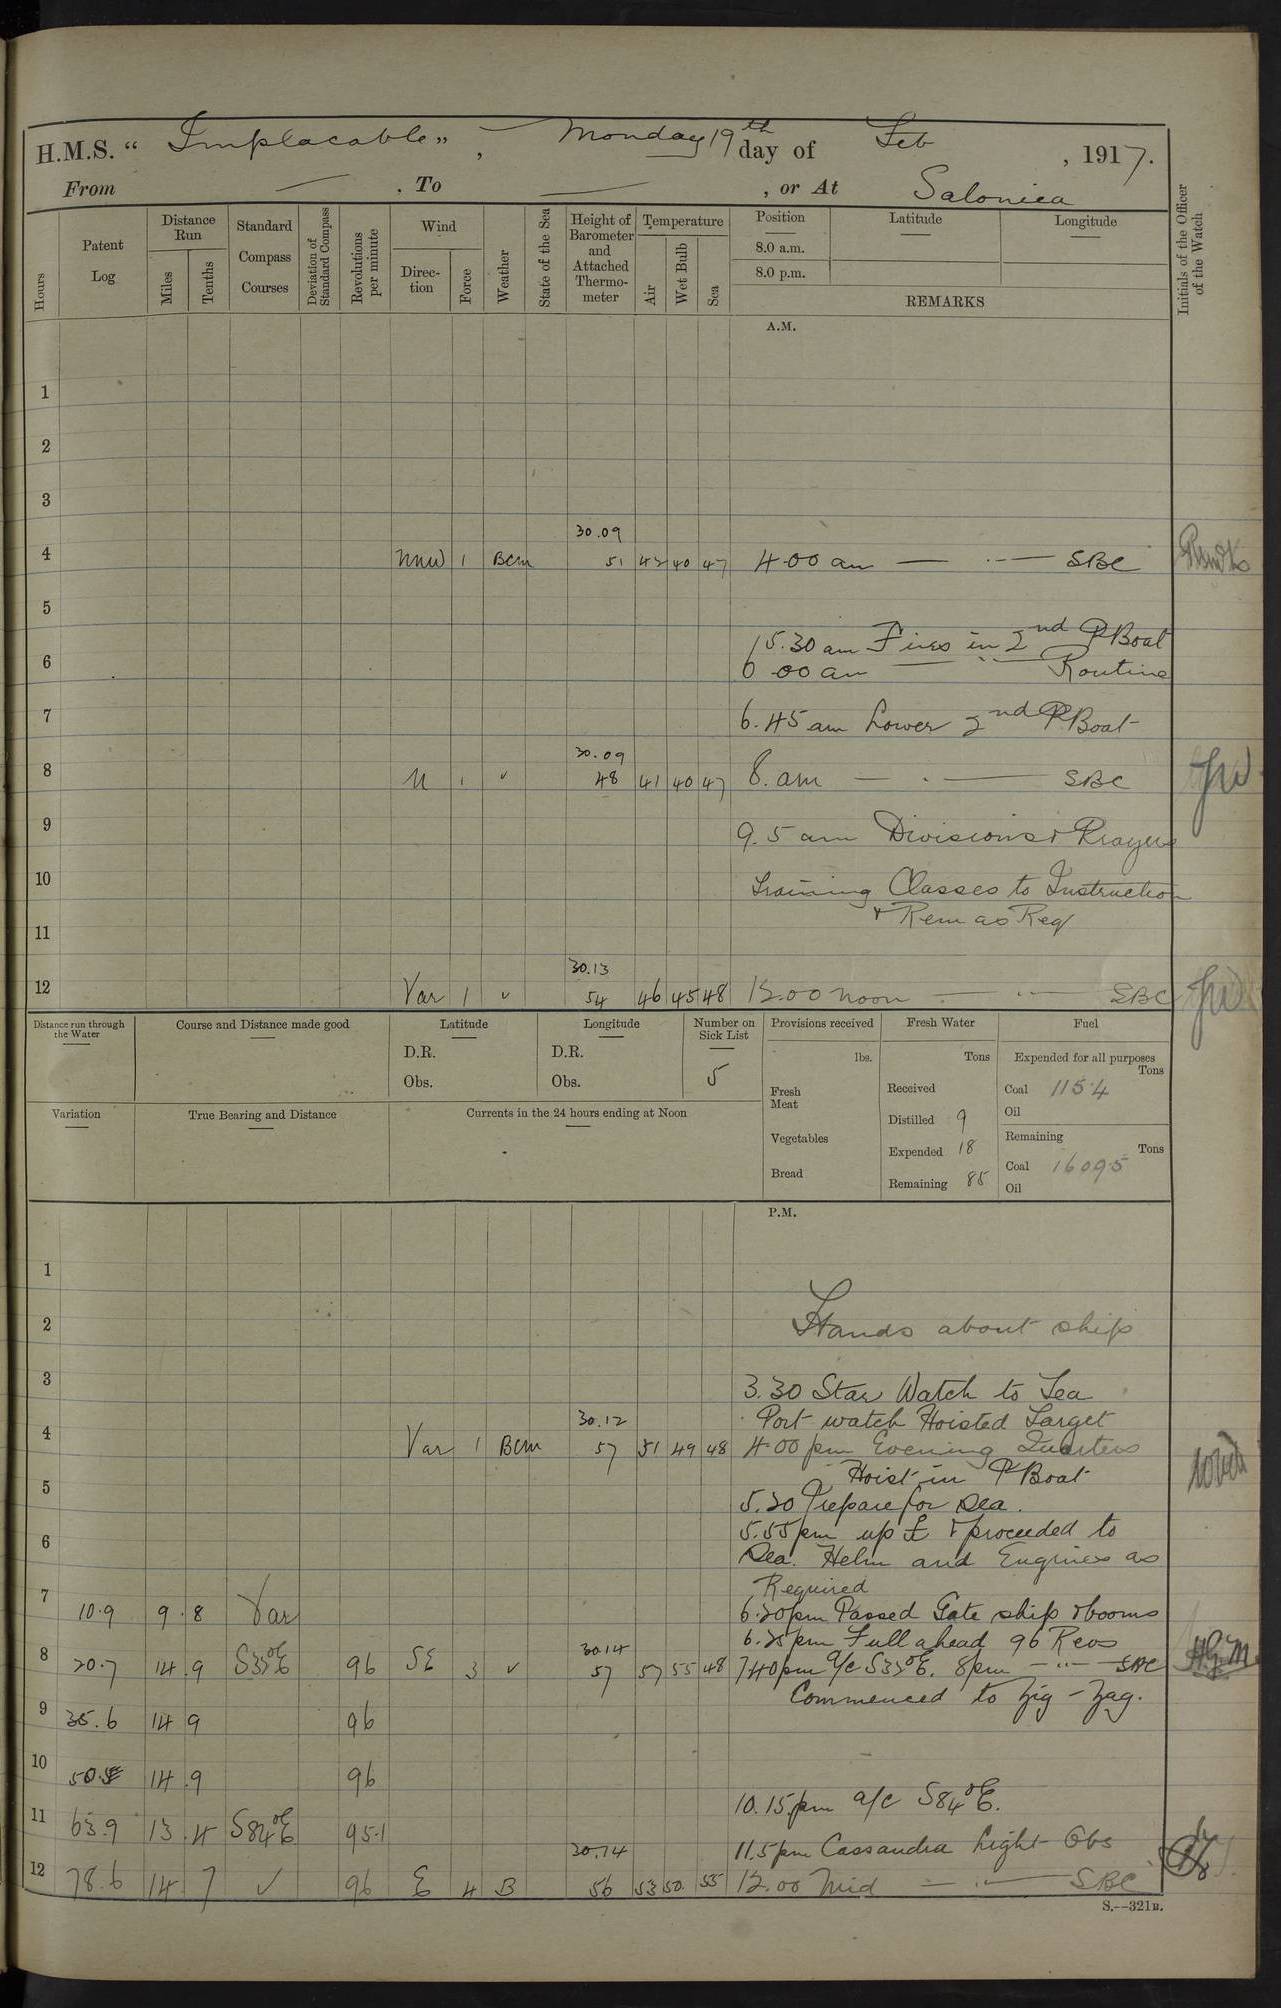 H.M.S. “ Implacable „ , Monday 19th day of Feb , 1917.
From — . To — , or At Salonica
Hours
Patent Log
Distance Run
Miles
Tenths
Standard Compass Courses
Deviation of Standard Compass
Revolutions per minute
Wind
Direction
Force
Weather
State of the Sea
Height of Barometer and Attached Thermometer
Temperature
Air
Wet Bulb
Sea
Position
8.0 a.m.
8.0 p.m.
Latitude
Longitude
REMARKS
Initials of the Officer of the Watch
A.M.
1
2
3
30.09
4 NNW 1 Bcm 51 42 40 47 4.00 am — " — SBC
5
5.30 am Fires in 2nd P Boat
6 6.00 am — " — Routine
7 6.45 am Lower 2nd P Boat
30.09
8 N 1 " 48 41 40 47 8. am — " — SBC
9 9.5 am Divisions & Prayers
10 Training Classes to Instruction
& Rem as Req
11
30.13
12 Var 1 " 54 46 45 48 12.00 noon — " — SBC
Distance run through the Water
Course and Distance made good
Latitude
D.R.
Obs.
Longitude
D.R.
Obs.
Number on Sick List
5
Provisions received
lbs.
Fresh Meat
Vegetables
Bread
Fresh Water
Tons
Received
Distilled 9
Expended 18
Remaining 85
Fuel
Expended for all purposes
Tons
Coal 115.4
Oil
Remaining
Tons
Coal 1609.5
Oil
Variation
True Bearing and Distance
Currents in the 24 hours ending at Noon
P.M.
1
2 Hands about ship
3 3.30 Star Watch to Tea
30.12 Port watch Hoisted Target
4 Var 1 Bcm 57 51 49 48 4.00 pm Evening Quarters
Hoist in P Boat
5 5.20 Prepare for Sea.
6 5.55 pm up & proceeded to
Sea. Helm and Engines as
Required
7 10.9 9.8 Var 6.20 pm Passed Gate ship & booms
30.14 6.25 pm Full ahead 96 Revs
8 20.7 14.9 S33°E 96 SE 3 " 57 57 55 48 7.40 pm a/c S33°E. 8 pm — " — SBC
HGM
Commenced to Zig-Zag.
9 35.6 14 9 96
10 50.5 14.9 96
10.15 pm a/c S84°E.
11 63.9 13.4 S84°E 95.1
30.14 11.5 pm Cassandra Light Obs
12 78.6 14 7 " 96 E 4 B 56 53 50 55 12.00 Mid — " — SBC
S.—321B.